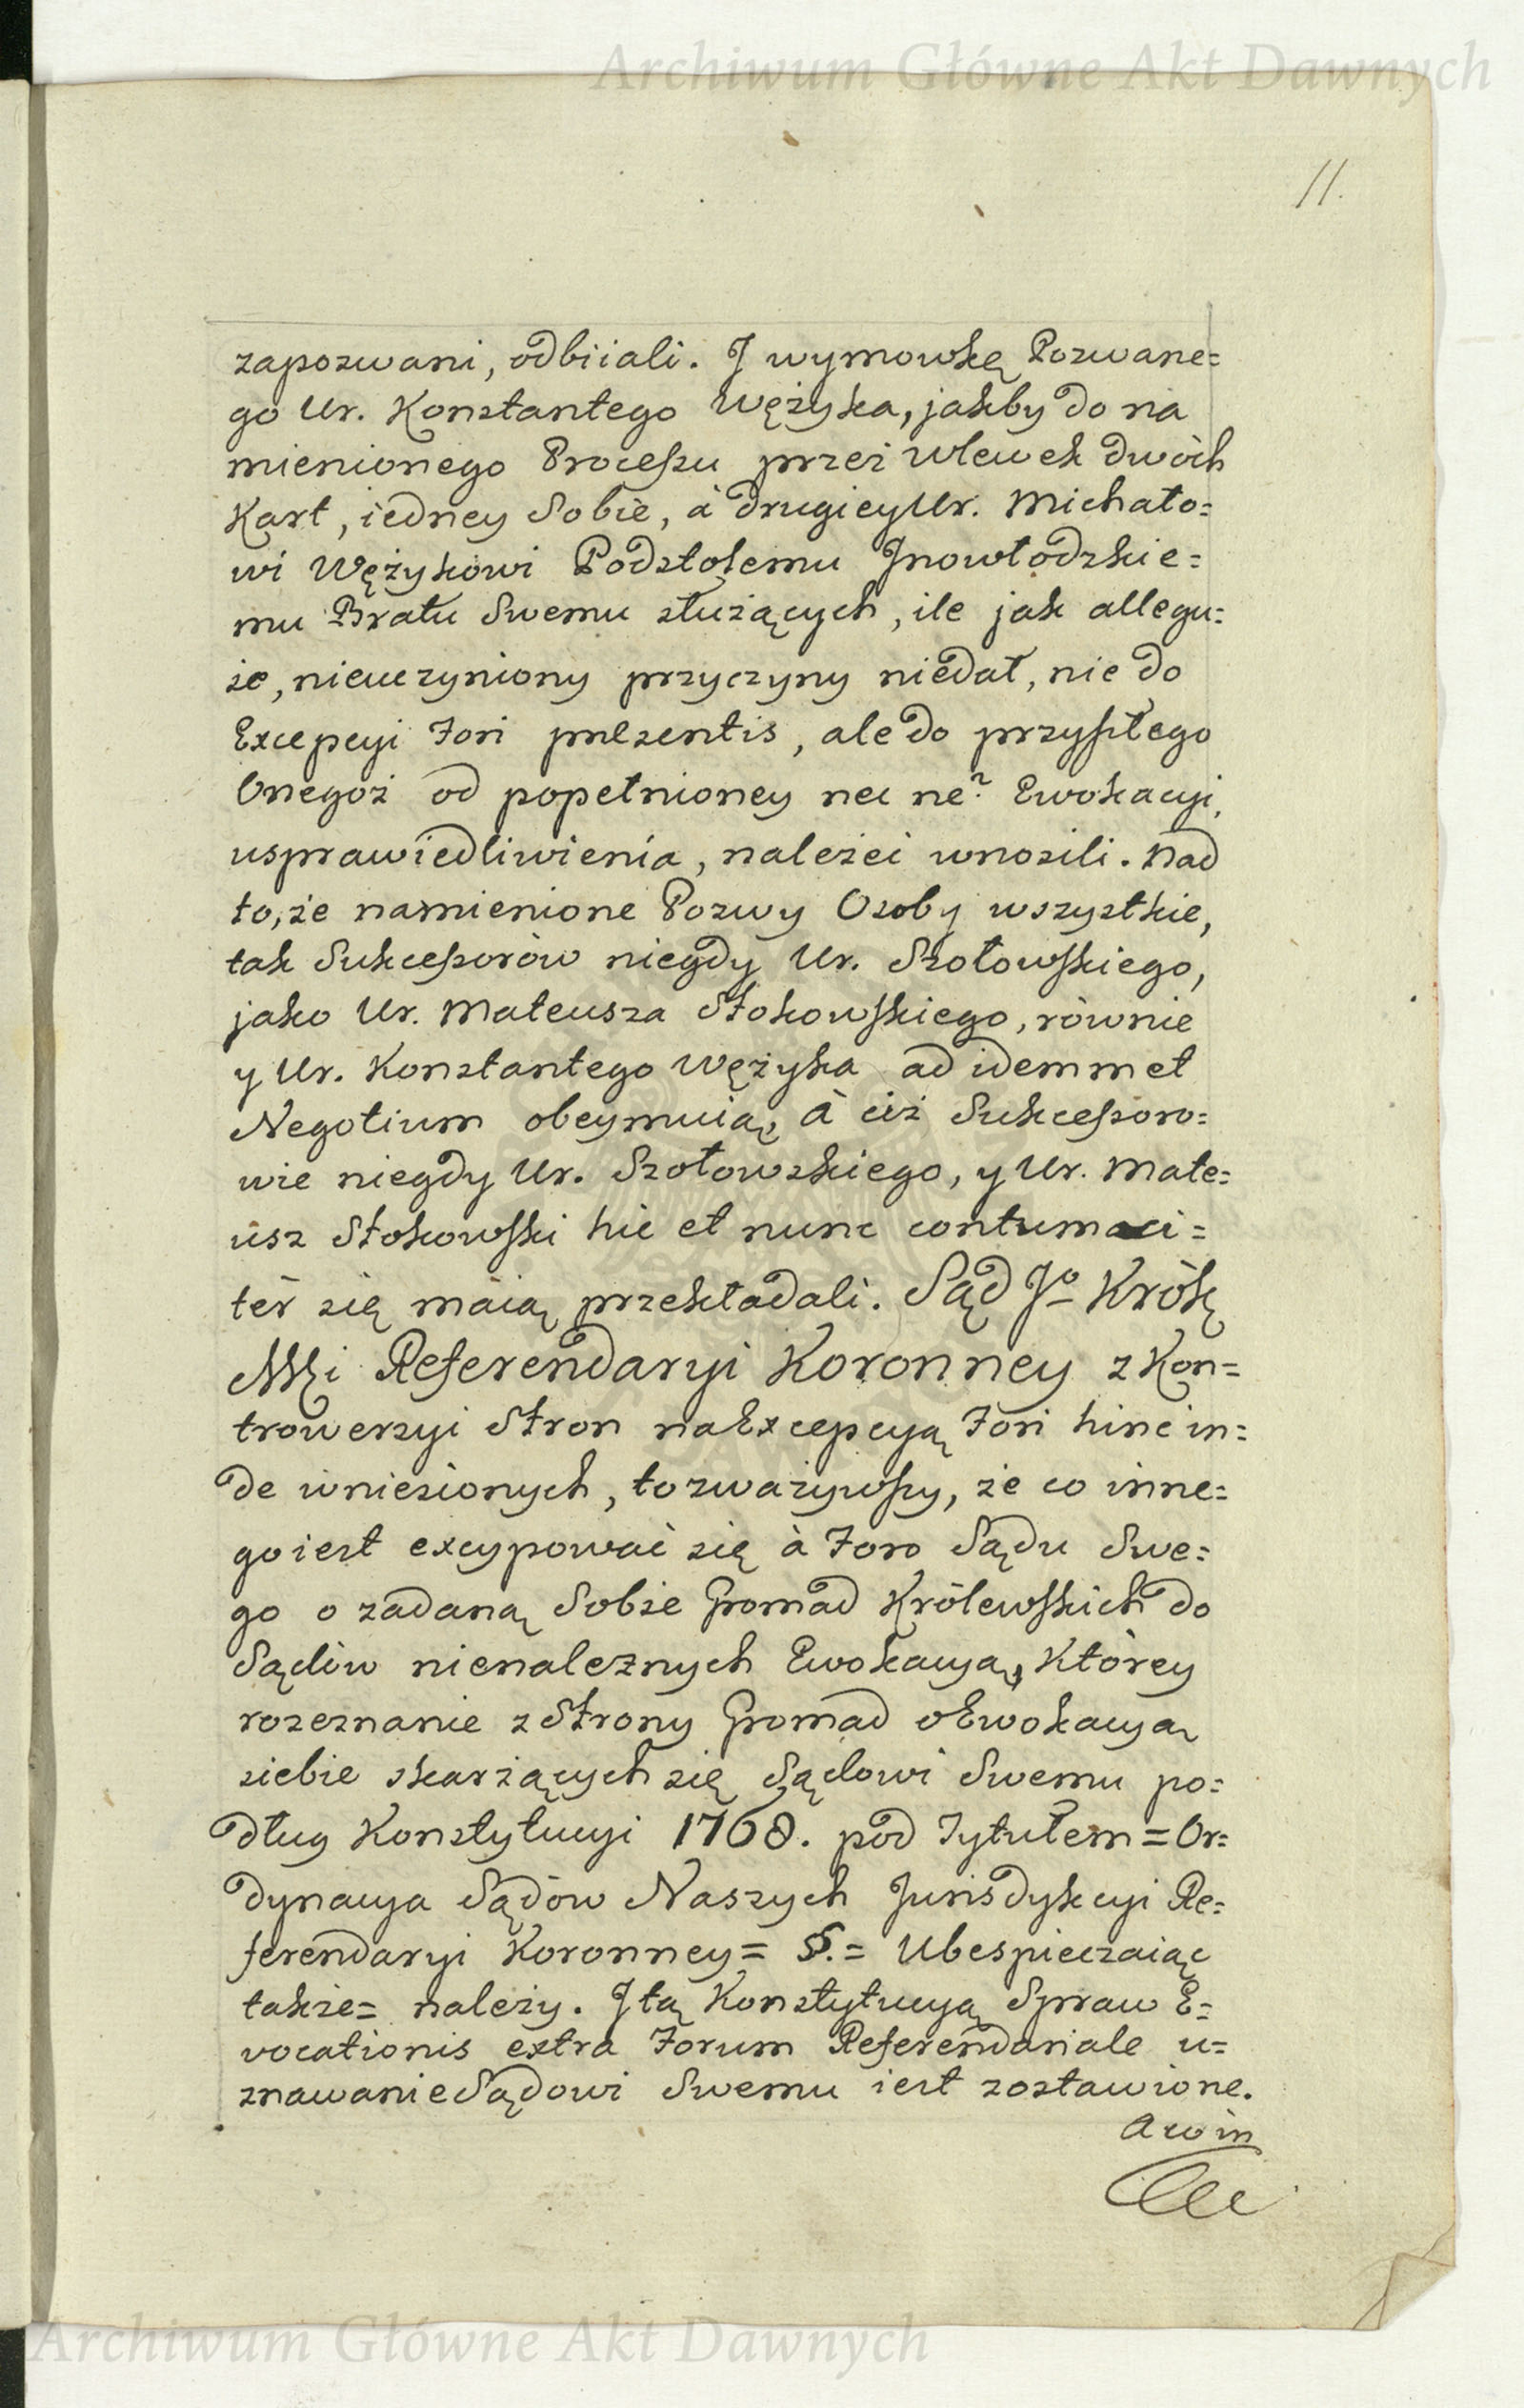 Archiwum Główne Akt Dawnych
11.
zapozwani, odbiiali. J wymowkę Pozwane=
go Ur. Konstantego Wężyka, jakby do na
mienionego Processu przez wlewek dwóch
Kart, iedney Sobie, à drugiey Ur. Michało=
wi Wężykowi Podstolemu Jnowłodzkie=
mu Bratu Swemu służących, ile jak allegu=
ie, nieuczyniony przyczyny niedał, nie do
Excepcyi Fori præsentis, ale do przyszłego
Onegoż od popełnioney nec ne? Ewokacyi,
usprawiedliwienia, należeć wnosili. Nad
to, że namienione Pozwy Osoby wszystkie,
tak Sukcessorów niegdy Ur. Szołowskiego,
jako Ur. Mateusza Stokowskiego, równie
y Ur. Konstantego Wężyka ad idemmet
Negotium obeymuią, à ciż Sukcessoro=
wie niegdy Ur. Szołowskiego, y Ur. Mate=
usz Stokowski hic et nunc contumaci=
tèr się máią przekładali. Sąd Jº Królẹ
Mẹi Referendaryi Koronney z Kon=
trowersyi Stron na Excepcyą Fori hinc in=
de wniesionych, to zważywszy, że co inne=
go iest excypować się à Foro Sądu Swe=
go o zadaną Sobie Gromad Królewskich do
Sądów nienależnych Ewokacyą, Którey
rozeznanie z Strony Gromad o Ewokacyą
siebie skarżących się Sądowi Swemu po=
dług Konstytucyi 1768. pod Tytułem = Or=
dynacya Sądów Naszych Jurisdykcyi Re=
ferendaryi Koronney = §. = Ubespieczaiąc
także = należy. J tą Konstytucyą Spraw E=
vocationis extra Forum Referendariale u=
znawanie Sądowi Swemu iest zostawione.
a co in
Archiwum Główne Akt Dawnych